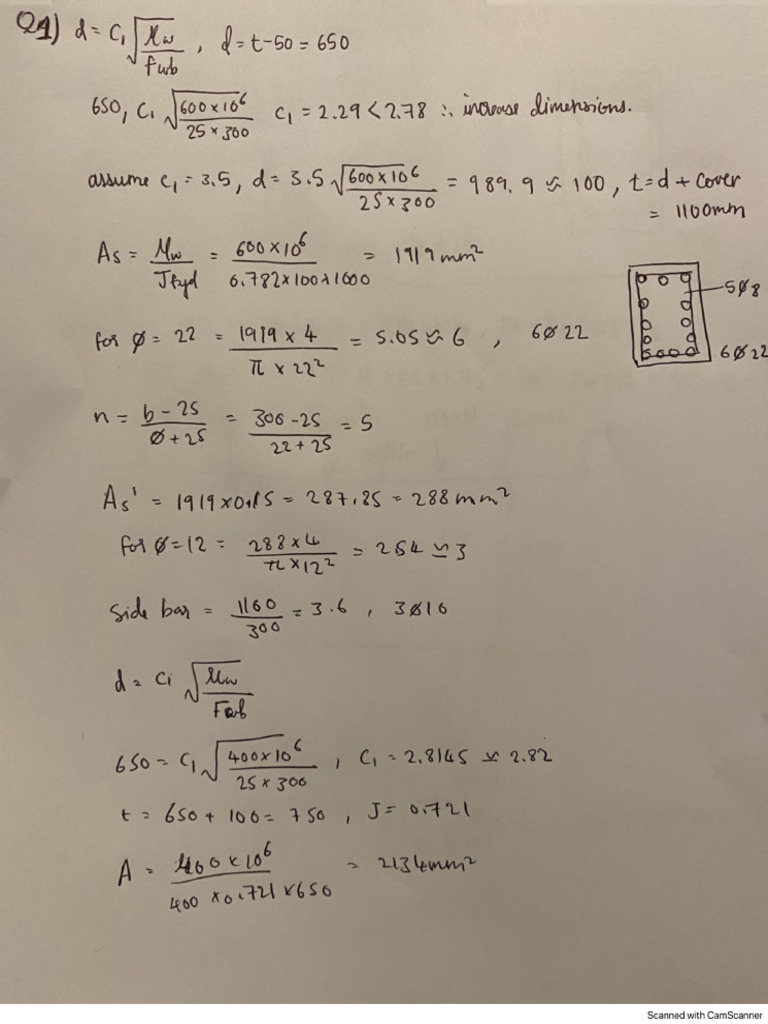 Q1) d = C₁ √(Mu / Fub) , d = t-50 = 650
650, C₁ √(600×10⁶ / 25×300) C₁ = 2.29 < 2.78 ∴ increase dimensions.
assume C₁ = 3.5, d = 3.5 √(600×10⁶ / 25×300) = 989.9 ≈ 100 , t = d + cover
= 1100mm
As = Mu / Jfyd = 600×10⁶ / 0.782×100×1000 = 1919 mm²
for ø = 22 = 1919 × 4 / π × 22² = 5.05 ≈ 6 , 6ø22
5ø8
6ø22
n = b-25 / ø+25 = 300-25 / 22+25 = 5
As' = 1919×0.15 = 287.85 = 288 mm²
for ø=12 = 288×4 / π×12² = 254 ≃ 3
Side bar = 1100 / 300 = 3.6 , 3ø10
d = C₁ √(Mu / Fub)
650 = C₁ √(400×10⁶ / 25×300) , C₁ = 2.8145 ≃ 2.82
t = 650 + 100 = 750 , J = 0.721
A = 400×10⁶ / 400×0.721×650 = 2134mm²
Scanned with CamScanner